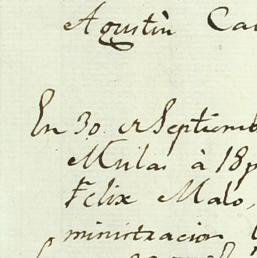 Agustin Ca
En 30 de Septiemb
Mulas à 18 p
Felix Malo,
ministracion